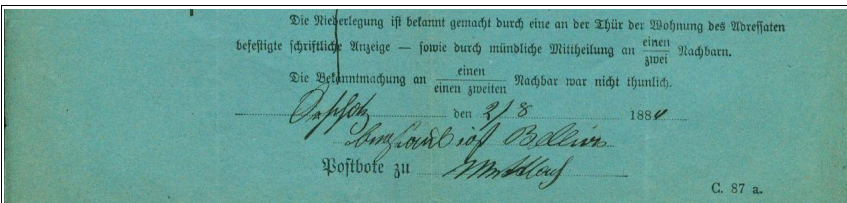 Die Niederlegung ist bekannt gemacht durch eine an der Thür der Wohnung des Adressaten
befestigte schriftliche Anzeige — sowie durch mündliche Mittheilung an einen/zwei Nachbarn.
Die Bekanntmachung an einen/einen zweiten Nachbar war nicht thunlich.
den 2/8 1884
Postbote zu
C. 87 a.